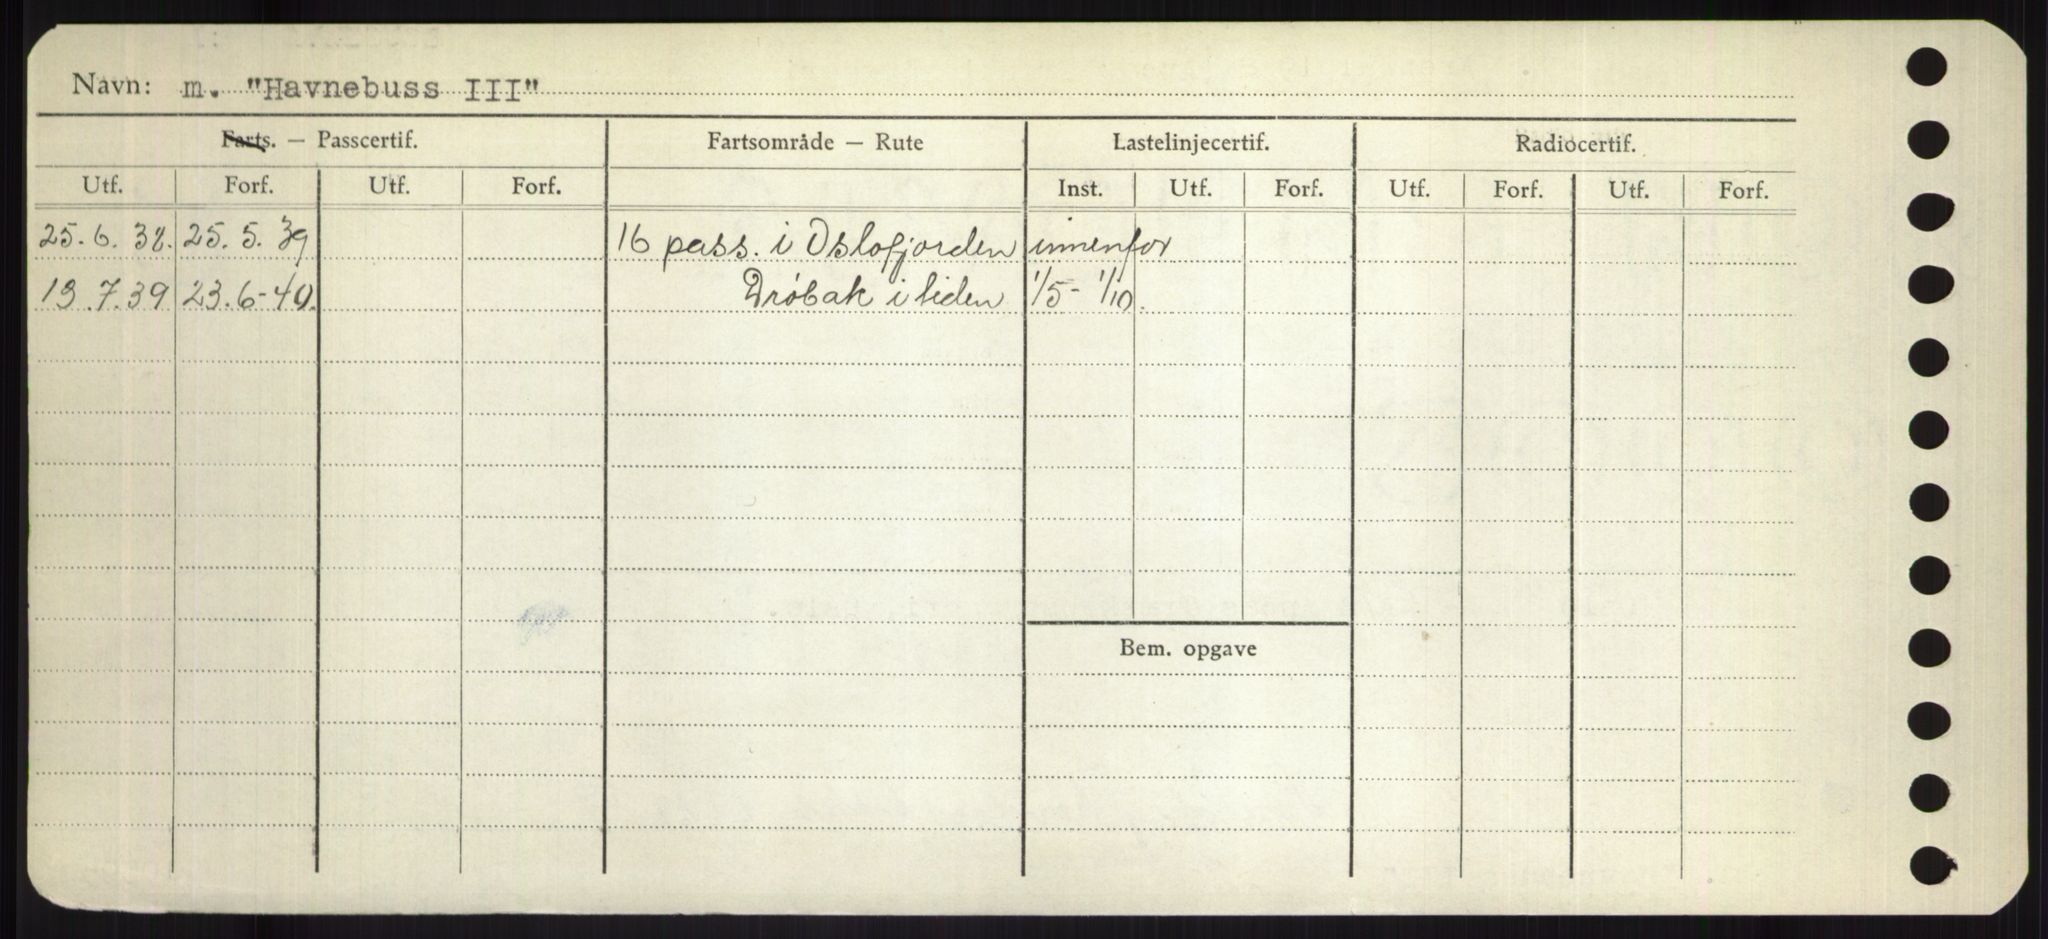 Navn: m. "Havnebuss III"
Farts. — Passcertif. Fartsområde — Rute Lastelinjecertif. Radiocertif.
Utf. Forf. Utf. Forf. Inst. Utf. Forf. Utf. Forf. Utf. Forf.
25.6.38. 25.5.39 16 pass. i Oslofjorden innenfor
13.7.39 23.6-40. Drøbak i tiden 1/5 - 1/10.
Bem. opgave